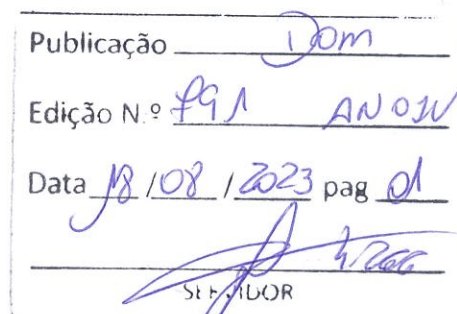 Publicação Dom
Edição N.º 791 ANO IV
Data 18/08/2023 pag 01
SERVIDOR